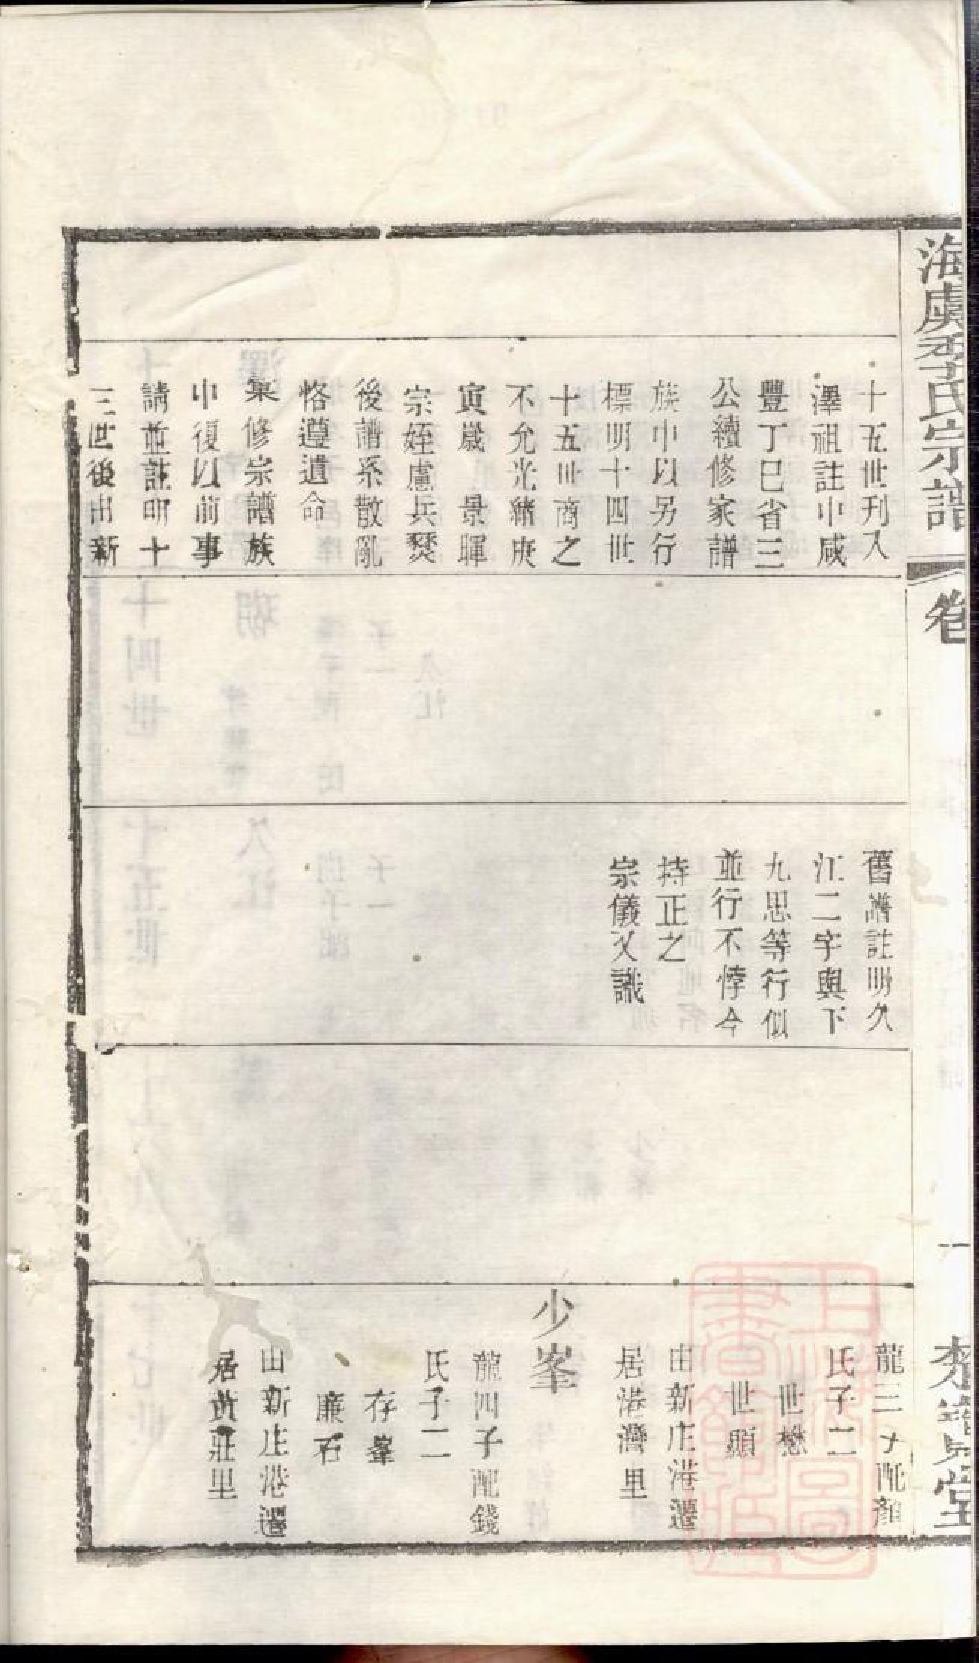 海虞季氏宗譜
卷
十五世刋入
澤祖註中咸
豐丁巳省三
公續修家譜
族中以另行
標明十四世
十五世商之
不允光緒庚
寅嵗 景暉
宗姪慮兵燹
後譜系散亂
恪遵遺命
集修宗譜族
中復以前事
請並註明十
三世後由新
舊譜註明久
江二字與下
九思等行似
並行不悖今
持正之
宗儀又識
龍三子配顏
氏子二
世懋
世顯
由新庄港遷
居港灣里
少峯
龍四子配錢
氏子二
存峯
廉石
由新庄港遷
居黄莊里
一